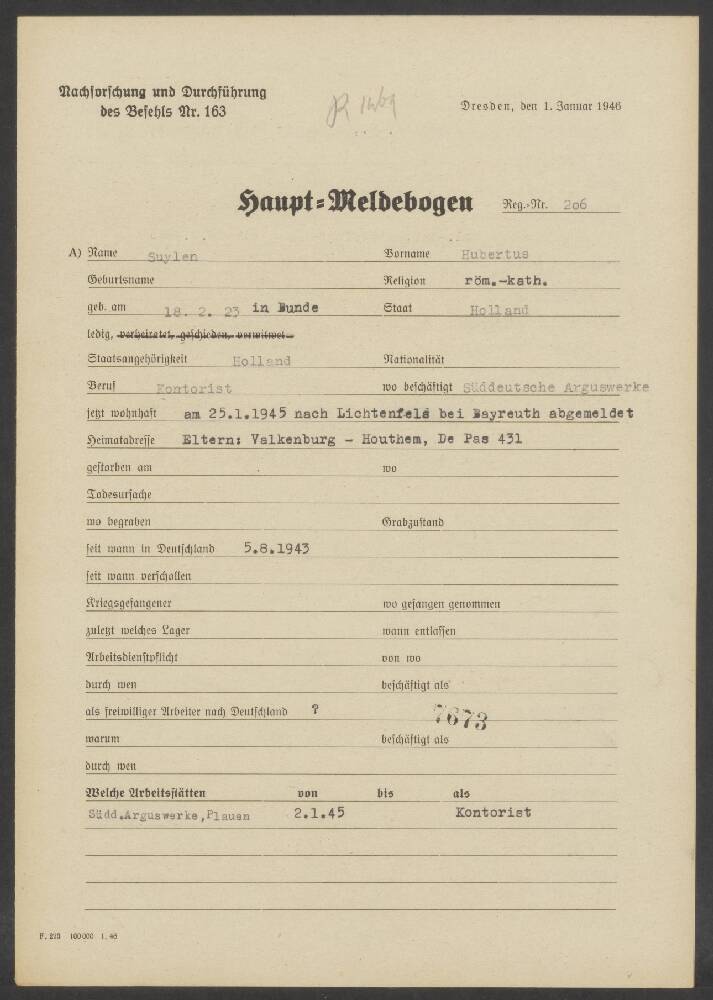 Nachforschung und Durchführung
des Befehls Nr. 163
Dresden, den 1. Januar 1946
Haupt=Meldebogen Reg.-Nr. 206
A) Name Suylen Vorname Hubertus
Geburtsname Religion röm.-kath.
geb. am 18. 2. 23 in Bunde Staat Holland
ledig, verheiratet, geschieden, verwitwet
Staatsangehörigkeit Holland Nationalität
Beruf Kontorist wo beschäftigt Süddeutsche Arguswerke
jetzt wohnhaft am 25.1.1945 nach Lichtenfels bei Bayreuth abgemeldet
Heimatadresse Eltern: Valkenburg - Houthem, De Pas 431
gestorben am wo
Todesursache
wo begraben Grabzustand
seit wann in Deutschland 5.8.1943
seit wann verschollen
Kriegsgefangener wo gefangen genommen
zuletzt welches Lager wann entlassen
Arbeitsdienstpflicht von wo
durch wen beschäftigt als
als freiwilliger Arbeiter nach Deutschland ? 7673
warum beschäftigt als
durch wen
Welche Arbeitsstätten von bis als
Südd.Arguswerke,Plauen 2.1.45 Kontorist
F. 293 100000 1. 46